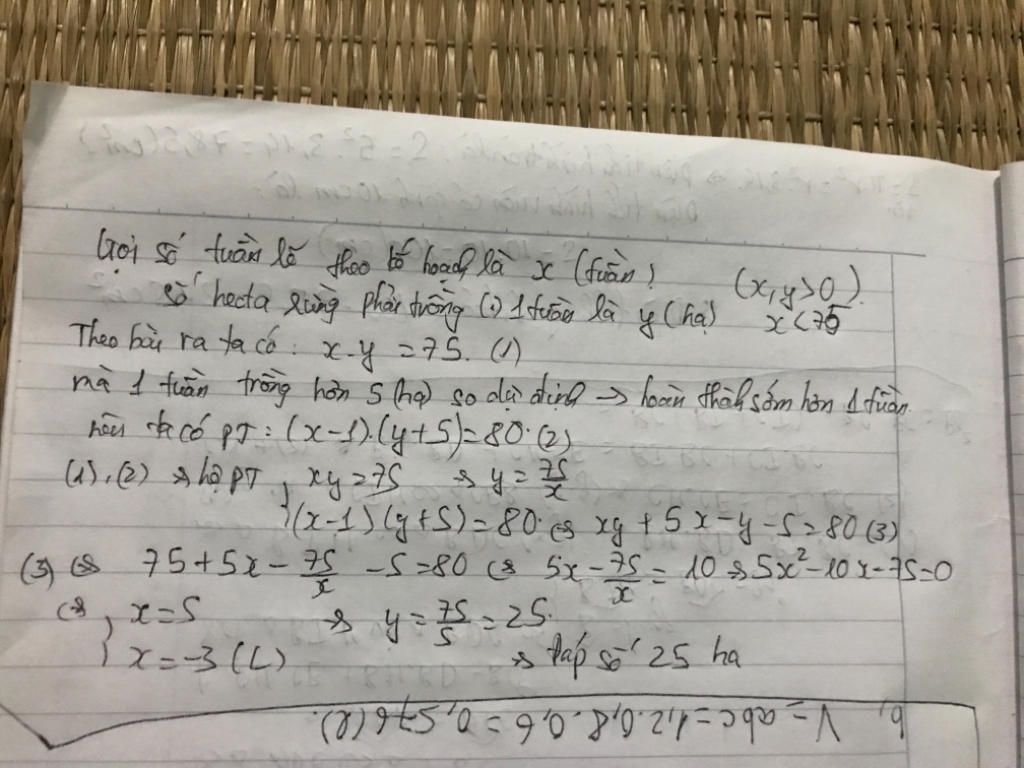 Gọi số tuần lễ theo kế hoạch là x (tuần) (x,y>0).
số hecta rừng phải trồng (.) 1 tuần là y (ha) x<75
Theo bài ra ta có: x.y = 75. (1)
mà 1 tuần trồng hơn 5 (ha) so dự định → hoàn thành sớm hơn 1 tuần
nên ta có PT: (x-1).(y+5)=80. (2)
(1), (2) → hệ PT { xy=75 → y = 75/x
(x-1)(y+5)=80. ⇔ xy+5x-y-5=80 (3)
(3) ⇔ 75+5x-75/x-5=80 ⇔ 5x-75/x=10 → 5x²-10x-75=0
⇔ { x=5 → y=75/5=25.
x=-3 (L) → Đáp số 25 ha
b, V=abc=1,2.0,8.0,6=0,576(l).